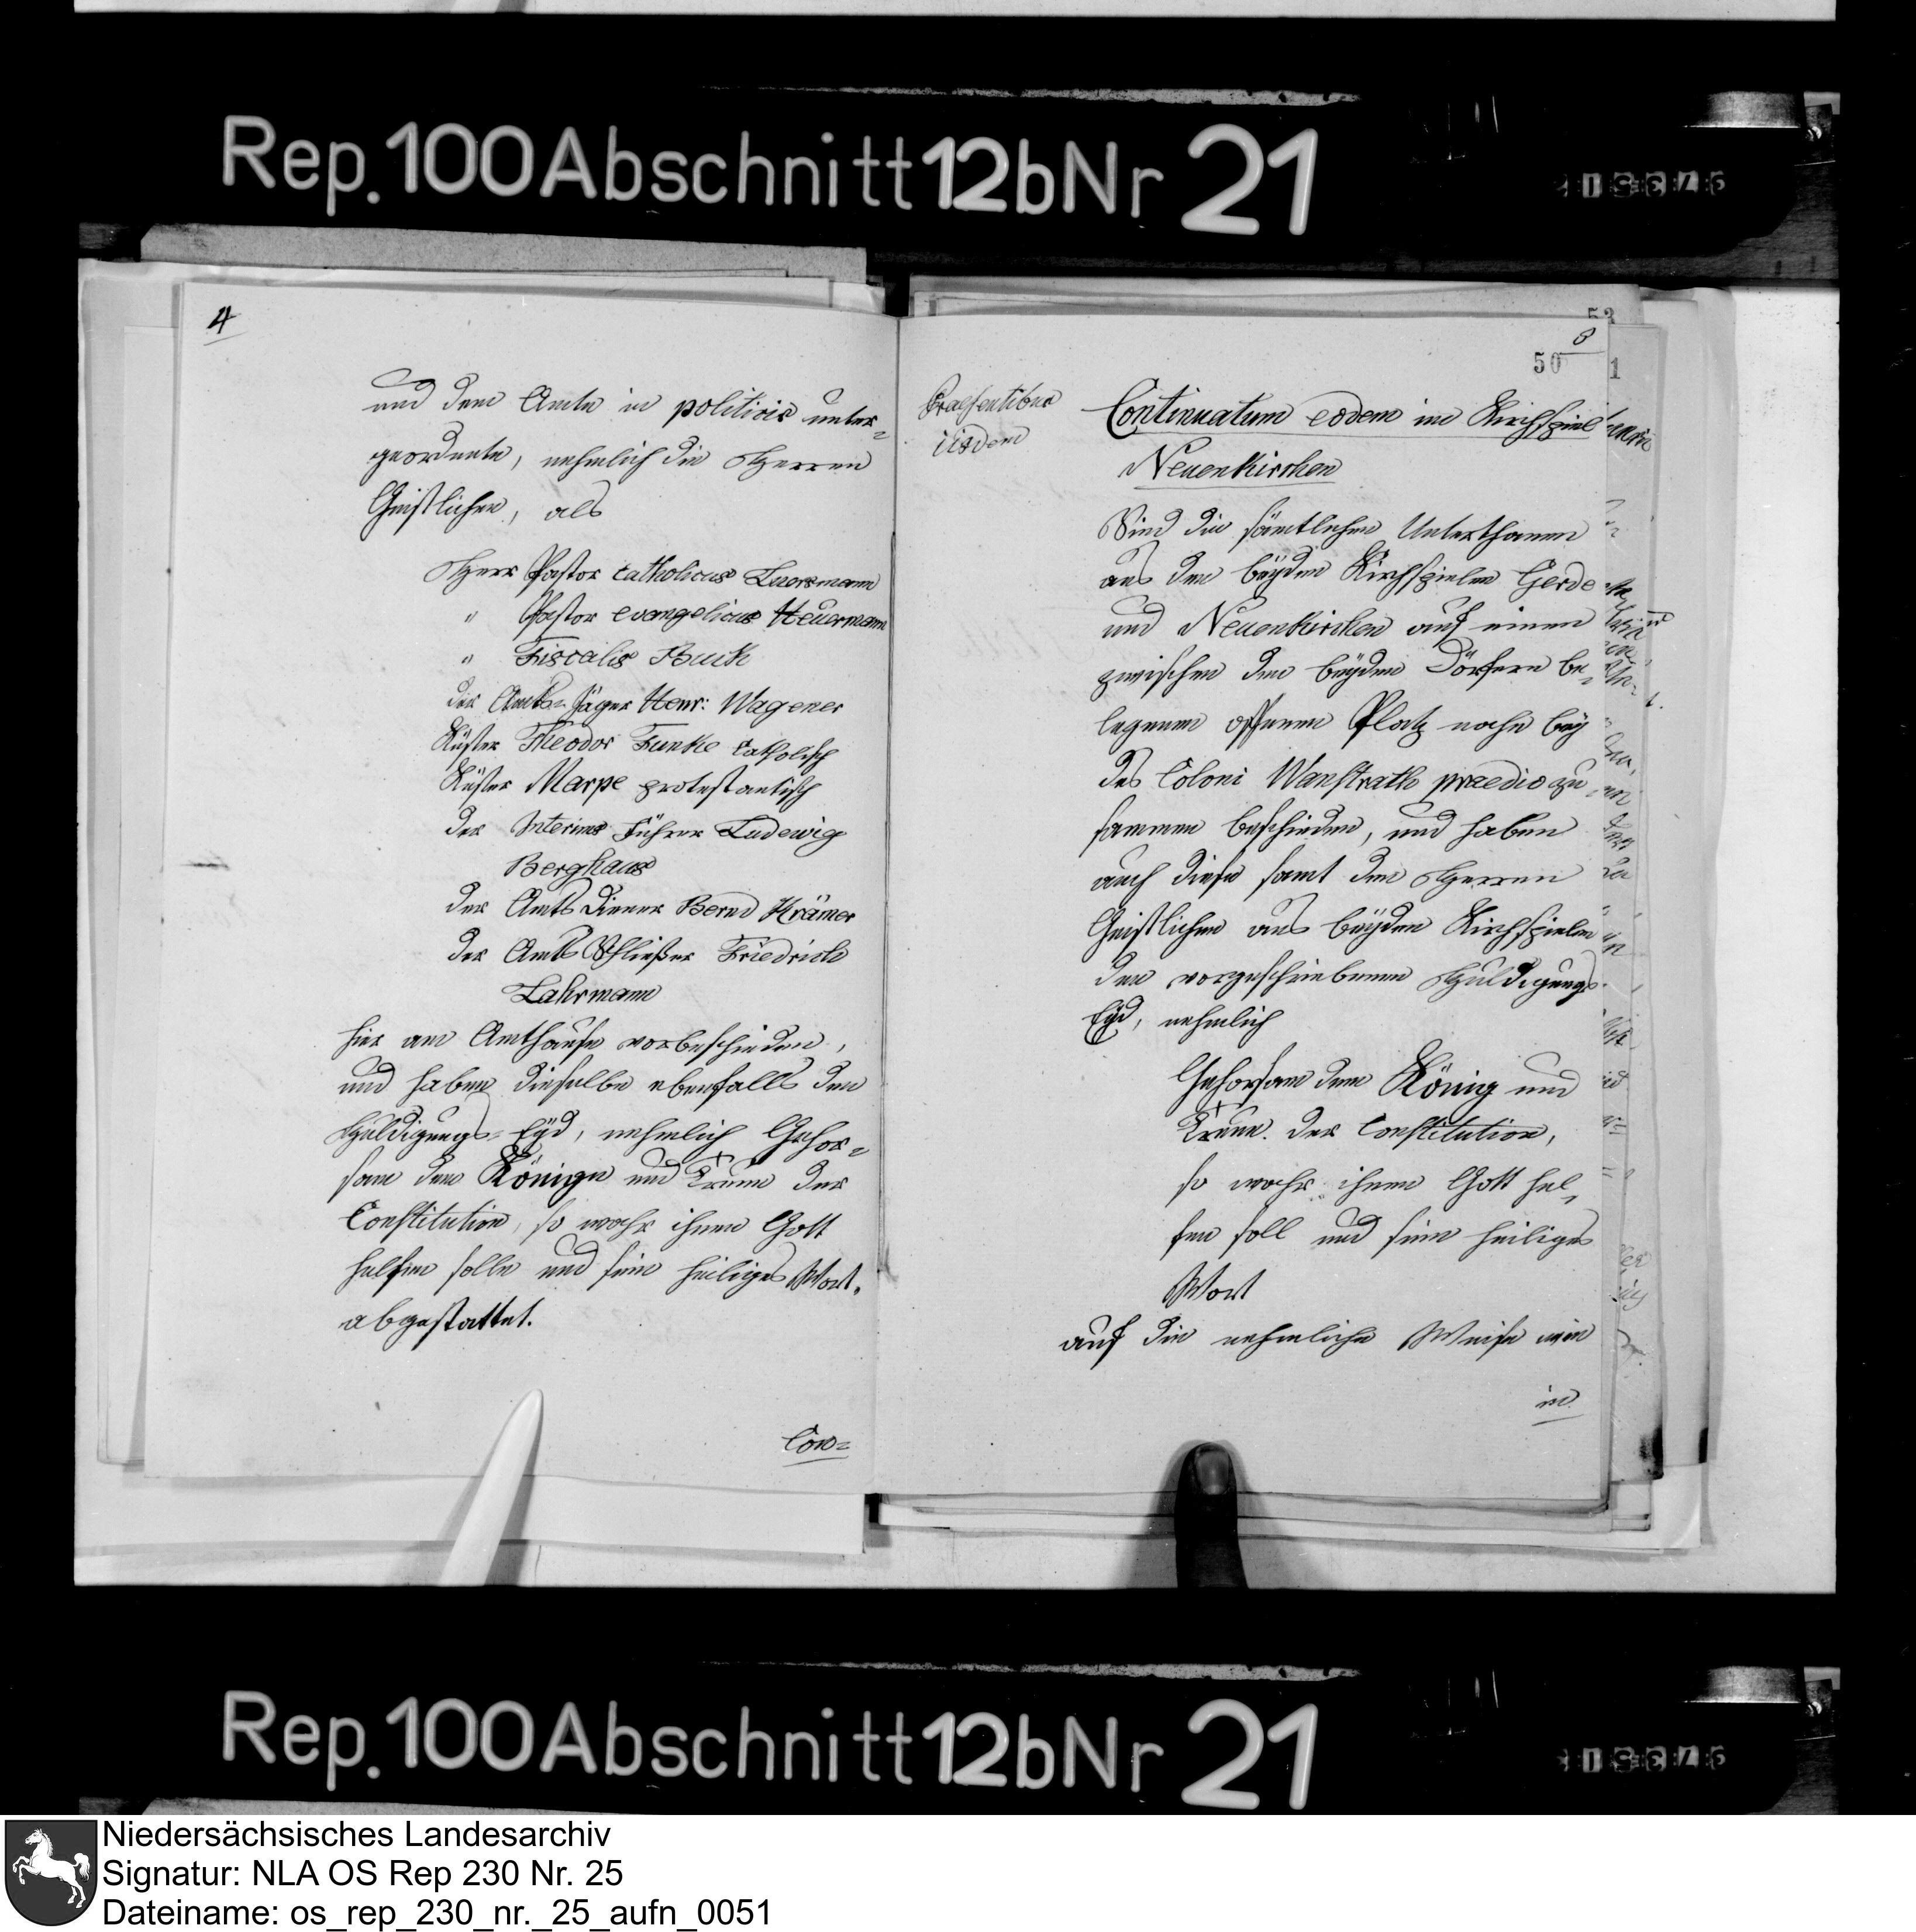 Rep. 100 Abschnitt 12b Nr 21
4
und dem Amte in politicis unter=
geordnete, nehmlich die Herren
Geistlichen, als
Herr Pastor catholicus Luersmann
" Pastor evangelicus Heuermann
" Fiscalis Buck
der Amts=Jäger Henr: Wagener
Küster Theodor Funke catholisch
Küster Marpe protestantisch
der Interims Führer Ludewig
Berghaus
der Amts Diener Bernd Krämer
der Amts Schließer Friedrich
Lahrmann
hier am Amthause vorbeschieden,
und haben dieselbe ebenfalls den
Huldigungs=Eyd, nehmlich Gehor=
sam dem Könige und Treue der
Constitution, so wahr ihnen Gott
helfen solle und sein heiliges Wort,
abgestattet.
Con=
50
Praesentibus
iisdem
Continuatum eodem im Kirchspiel
Neuenkirchen
Sind die sämtlichen Unterthanen
aus den beyden Kirchspielen Gerde
und Neuenkirchen auf einen
zwischen den beyden Dörfern be=
legenen offenen Platz nahe bey
des Coloni Wanstrath praedio zu
sammen beschieden, und haben
auch diese samt den Herren
Geistlichen aus beyden Kirchspielen
den vorgeschriebenen Huldigungs
Eyd, nehmlich
Gehorsam dem König und
Treue der Constitution,
so wahr ihnen Gott hel=
fen soll und sein heiliges
Wort
auf die nehmliche Weise wie
in
Rep. 100 Abschnitt 12b Nr 21
Niedersächsisches Landesarchiv
Signatur: NLA OS Rep 230 Nr. 25
Dateiname: os_rep_230_nr._25_aufn_0051